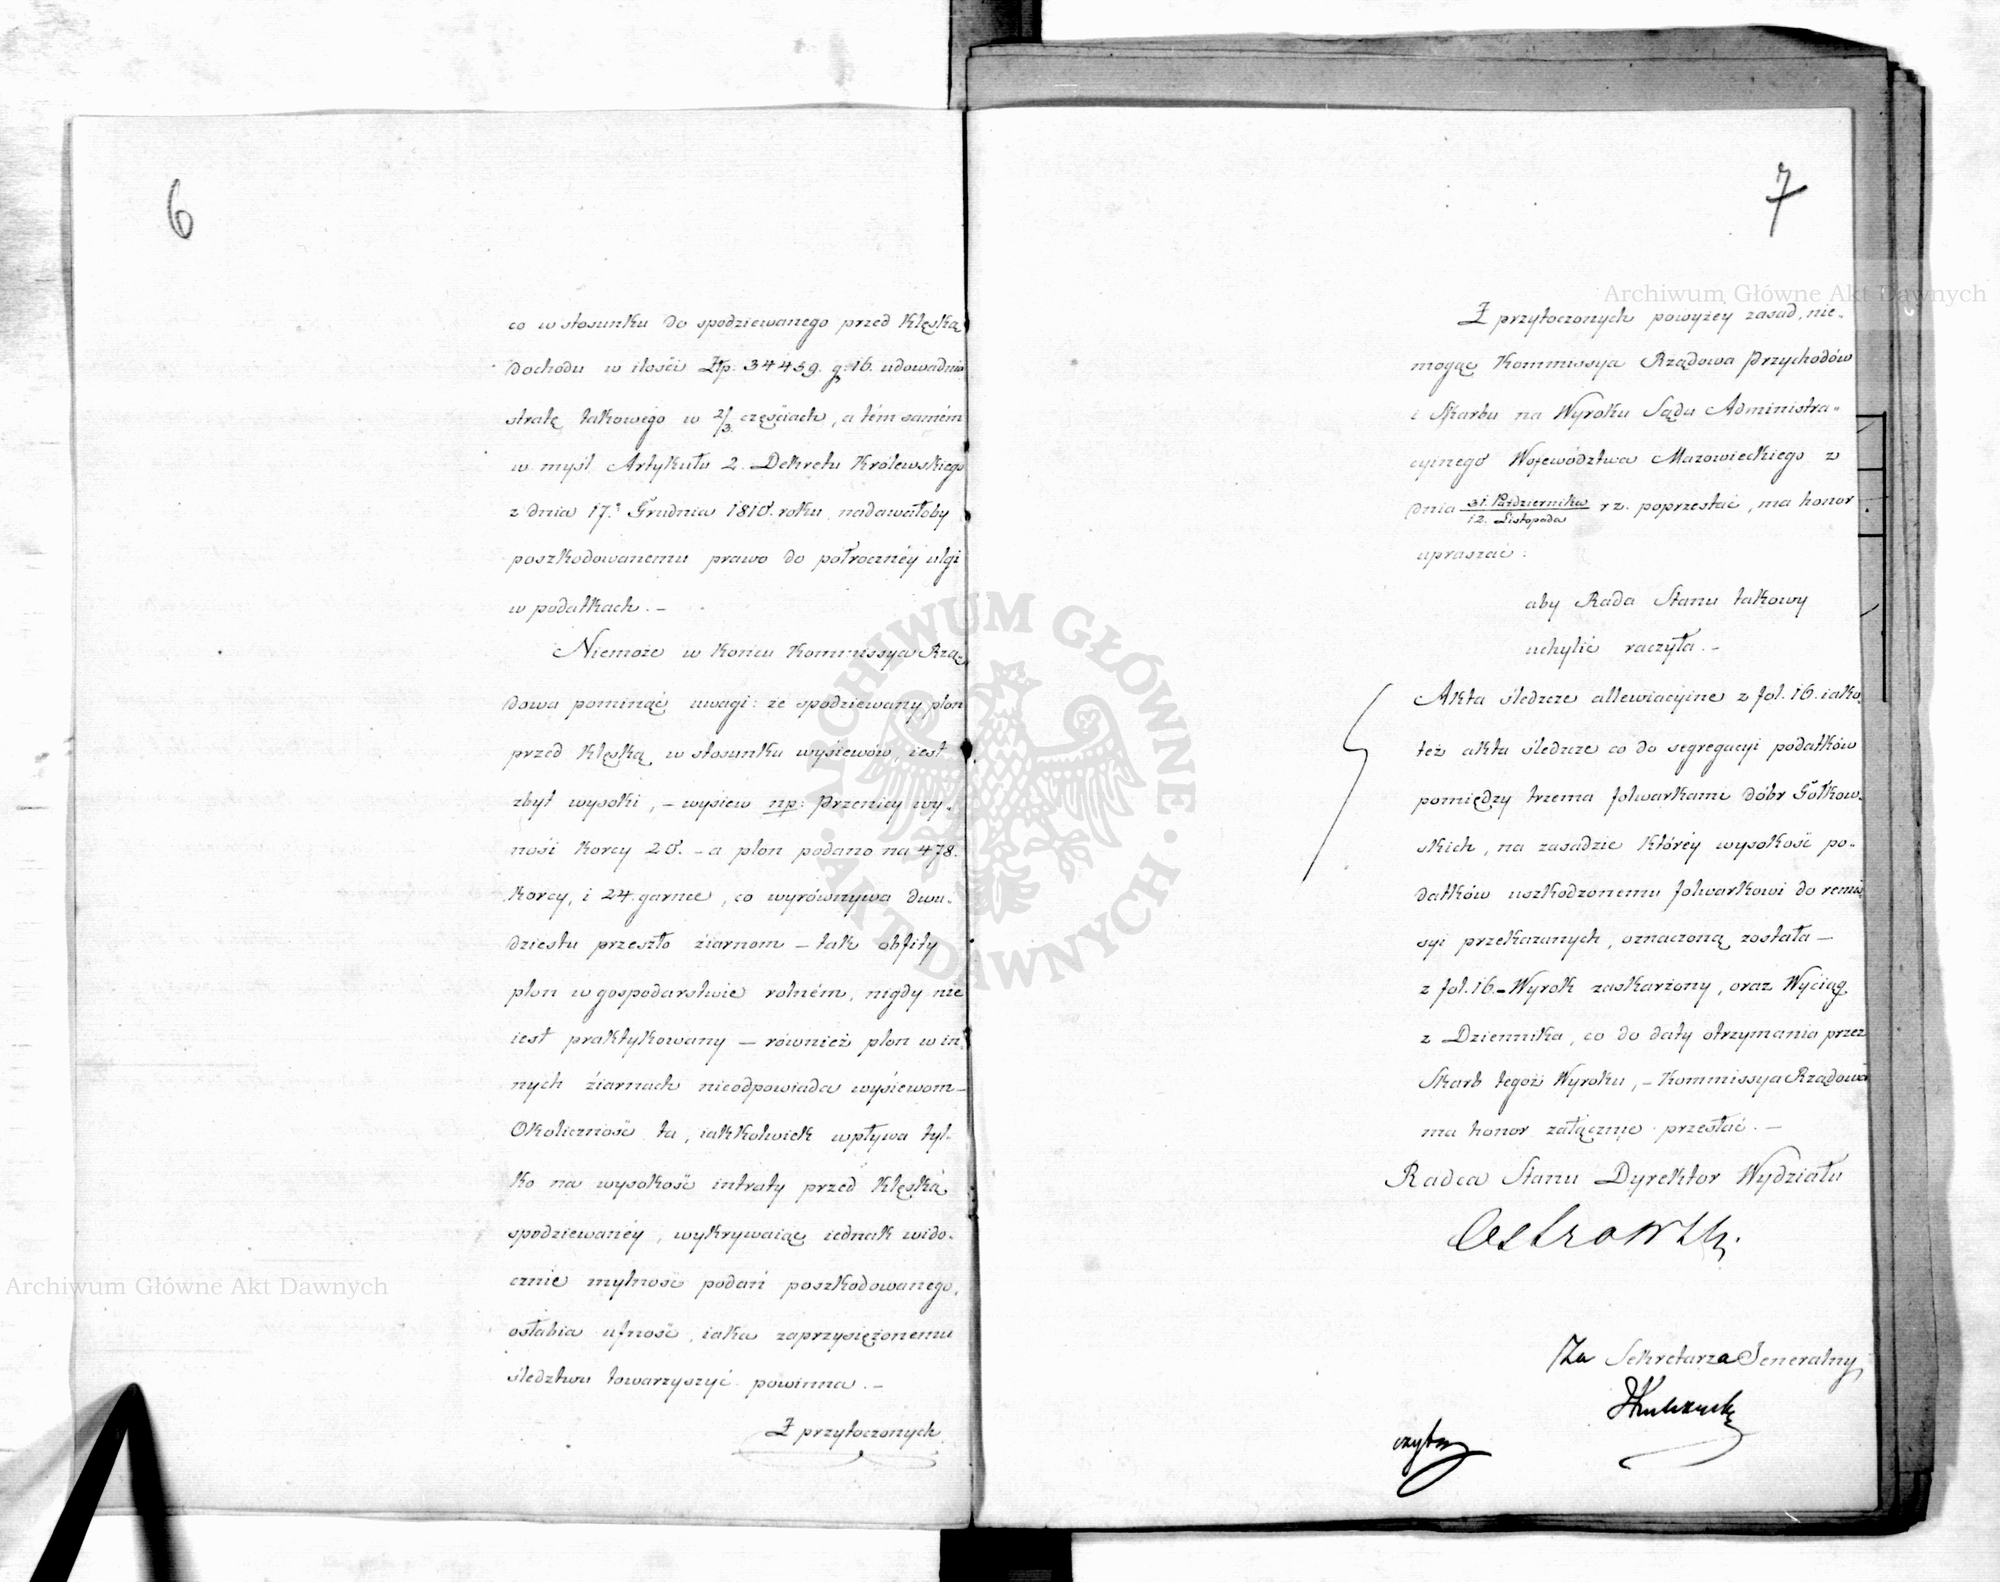 6
co w stosunku do spodziewanego przed klęską
dochodu w ilości Złp. 34459. g: 16. udowadnia
stratę takowego w 2/3. częściach, a tém samém
w myśl Artykułu 2. Dekretu Królewskiego
z dnia 17. Grudnia 1810. roku, nadawałoby
poszkodowanemu prawo do półrocznéy ulgi
w podatkach. –
Niemoże w końcu Kommissya Rzą-
dowa pominąć uwagi: że spodziewany plon
przed klęską, w stosunku wysiewów, iest
zbyt wysoki, – wysiew np: Przenicy wy-
nosi korcy 20. – a plon podano na 478.
korcy, i 24. garnce, co wyrównywa dwu-
dziestu przeszło ziarnom – tak obfity
plon w gospodarstwie rolném, nigdy nie
iest praktykowany – również plon w in-
nych ziarnach nieodpowiada wysiewom –
Okoliczność ta, iakkolwiek wpływa tyl-
ko na wysokość intraty przed klęską
spodziewanéy, wykrywaiąc iednak wido-
cznie mylność podań poszkodowanego,
osłabia ufność, iaka zaprzysiężonemu
śledztwu towarzyszyć powinna. –
Z przytoczonych
7
Z przytoczonych powyżey zasad, nie-
mogąc Kommissya Rządowa Przychodów
i Skarbu na Wyroku Sądu Administra-
cyinego Województwa Mazowieckiego z
dnia 31. Października / 12. Listopada r z. poprzestać, ma honor
upraszać:
aby Rada Stanu takowy
uchylić raczyła. –
Akta śledcze allewiacyine z fol. 16. iako
też akta śledcze co do segregacyi podatków
pomiędzy trzema folwarkami dóbr Gółkow-
skich, na zasadzie któréy wysokość po-
datków uszkodzonemu folwarkowi do remis-
syi przekazanych, oznaczoną została –
z fol. 16. – Wyrok zaskarżony, oraz Wyciąg
z Dziennika, co do daty otrzymania przez
Skarb tegoż Wyroku, – Kommissya Rządowa
ma honor załącznie przesłać. –
Radca Stanu Dyrektor Wydziału
Ostrowski.
Za Sekretarza Generalny
Archiwum Główne Akt Dawnych
Archiwum Główne Akt Dawnych
ARCHIWUM GŁÓWNE · AKT DAWNYCH ·